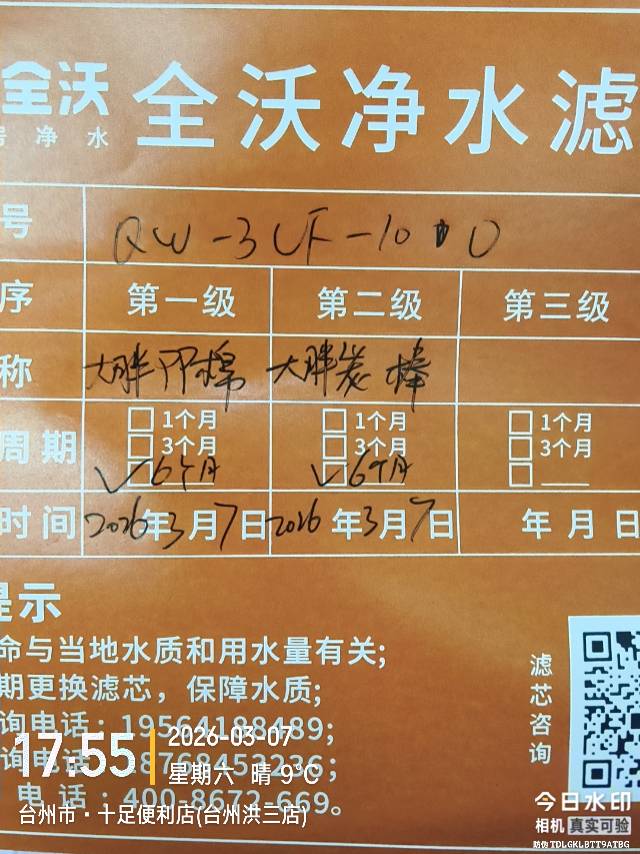 全沃 全沃净水滤
净水
号 QW-3UF-1000
序 第一级 第二级 第三级
称 大胖PP棉 大胖炭棒
周期 1个月 1个月 1个月
3个月 3个月 3个月
✓6个月 ✓6个月
时间 2026年3月7日 2026年3月7日 年月日
提示
命与当地水质和用水量有关;
期更换滤芯，保障水质;
询电话：19564188489;
询电话：18768453236;
电话：400-8672-669。
滤芯咨询
17:55
2026-03-07
星期六 晴 9℃
台州市·十足便利店(台州洪三店)
今日水印
相机 真实可验
防伪 TDLGKLBTT9ATBG